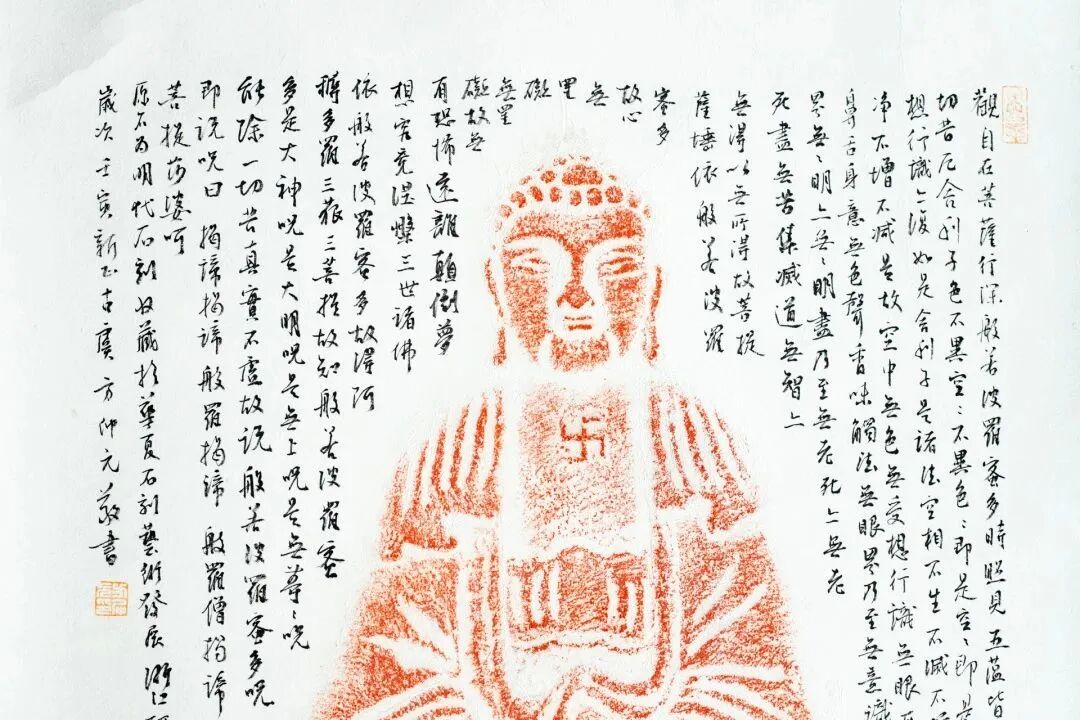 觀自在菩薩行深般若波羅蜜多時照見五蘊皆
切苦厄舍利子色不異空〻不異色〻即是空〻即是
想行識亦復如是舍利子是諸法空相不生不滅不
淨不增不減是故空中無色無受想行識無眼
鼻舌身意無色聲香味觸法無眼界乃至無意識
界無〻明亦無〻明盡乃至無老死亦無老
死盡無苦集滅道無智亦
無得以無所得故菩提
薩埵依般若波羅
蜜多
故心
無
罣
礙
無罣
礙故無
有恐怖遠離顛倒夢
想究竟涅槃三世諸佛
依般若波羅蜜多故得阿
耨多羅三藐三菩提故知般若波羅蜜
多是大神呪是大明呪是無上呪是無等〻呪
能除一切苦真實不虛故說般若波羅蜜多呪
即說呪曰揭諦揭諦般羅揭諦般羅僧揭諦
菩提莎婆呵
原石為明代石刻收藏於華夏石刻藝術發展
歲次壬寅新正古虞方仲元敬書